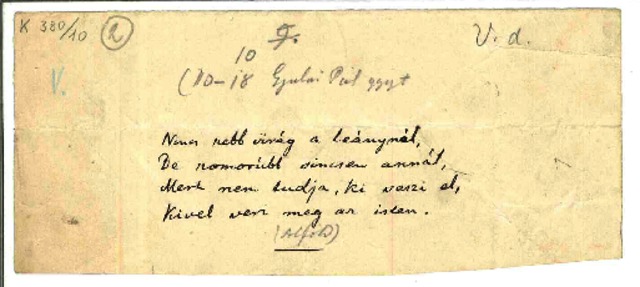 K 380/10 2 V. d.
V.
10
(10-18 Gyulai Pál gyujt
Nincs szebb virág a leánynál,
De szomorúbb sincsen annál,
Mert nem tudja, ki veszi el,
Kivel veri meg az isten.
(Alföld)